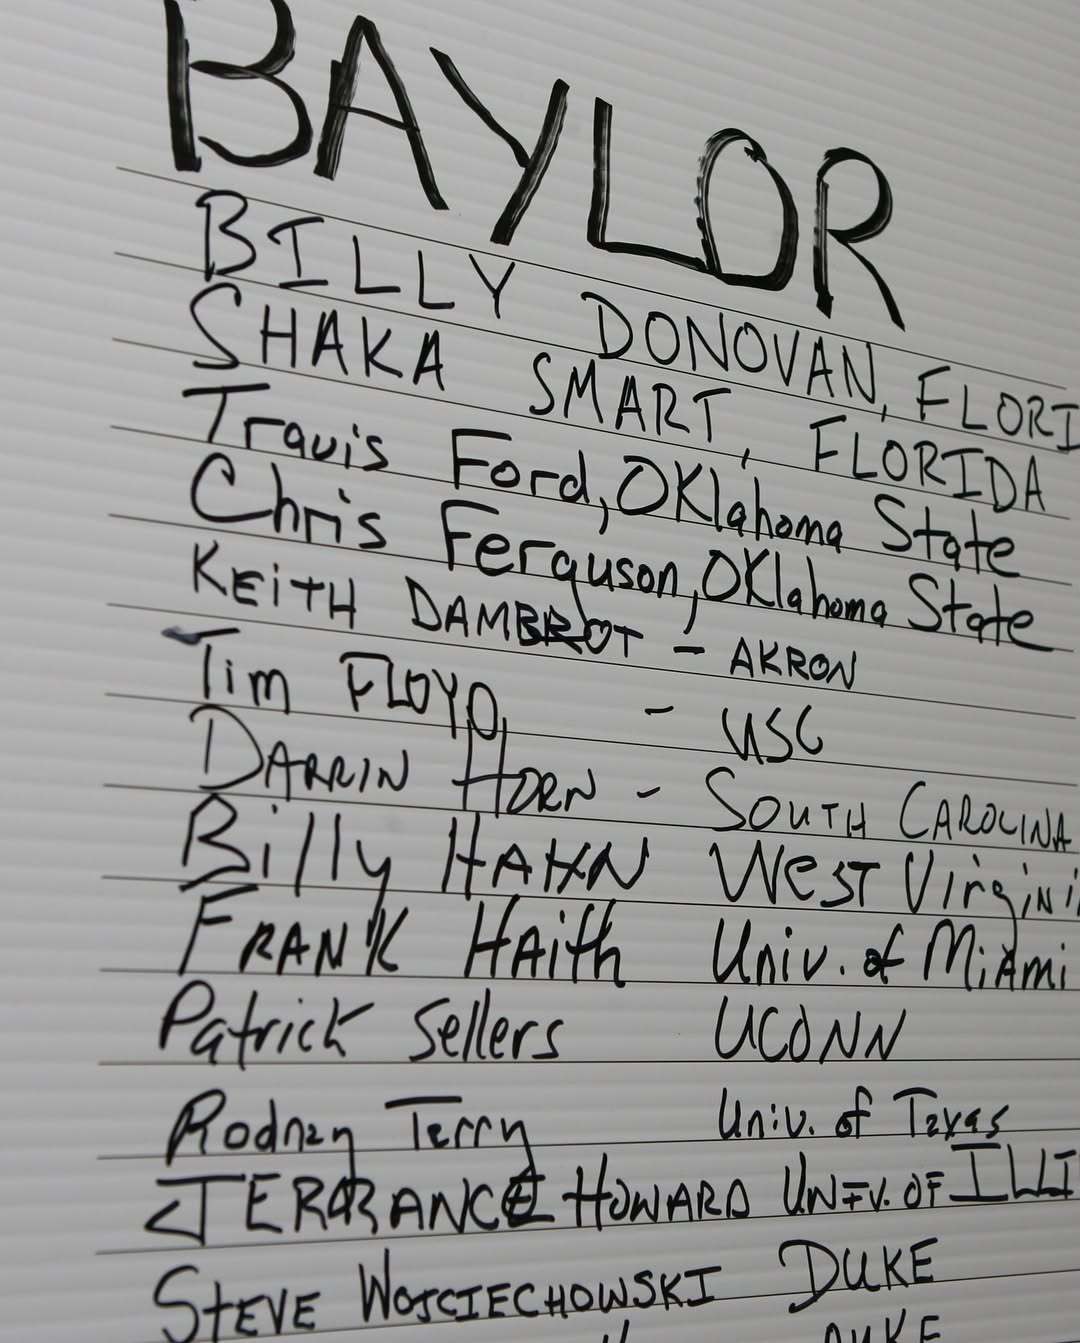 BAYLOR
BILLY DONOVAN, FLORI
SHAKA SMART, FLORIDA
Travis Ford, Oklahoma State
Chris Ferguson, Oklahoma State
KEiTH DAMBROT - AKRON
Tim FLOYD - USC
DARRIN HORN - SOUTH CAROLINA
Billy HAHN WeST Virgini
FRANK HAith Univ. of MiAmi
Patrick Sellers UCONN
Rodney Terry Univ. of Texas
JERRANCE HOWARD UNIV. OF ILLI
STEVE WOJCIECHOWSKI DUKE
DUKE